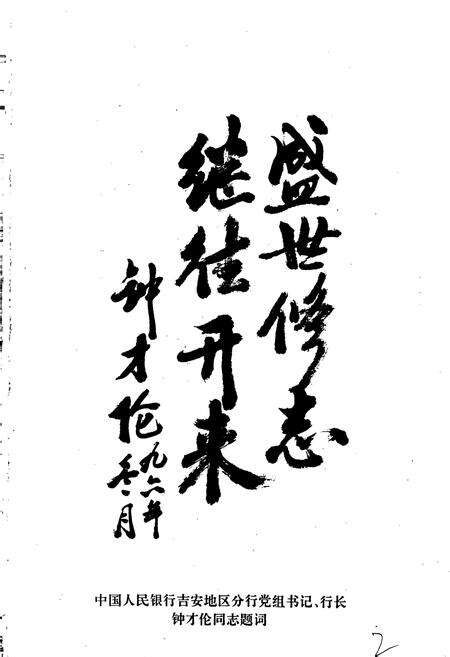 盛世修志
继往开来
钟才伦
九六年
冬月
中国人民银行吉安地区分行党组书记、行长
钟才伦同志题词
2